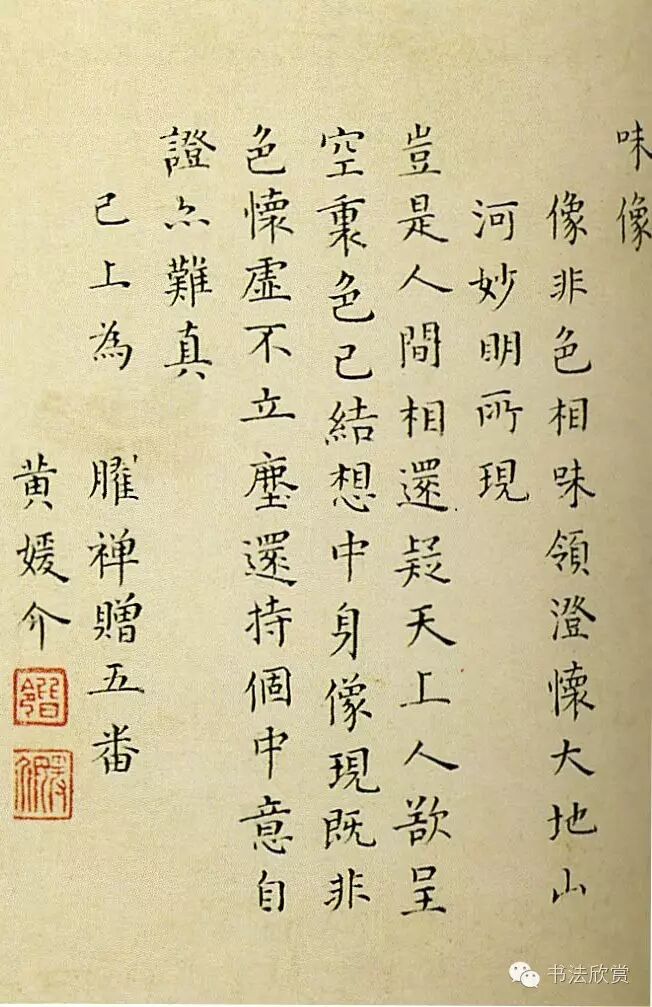 味像
像非色相味領澄懷大地山
河妙明所現
豈是人間相還疑天上人欲呈
空裏色已結想中身像現既非
色懷虛不立塵還持個中意自
證亦難真
已上為 臞禅贈五番
黄媛介
书法欣赏